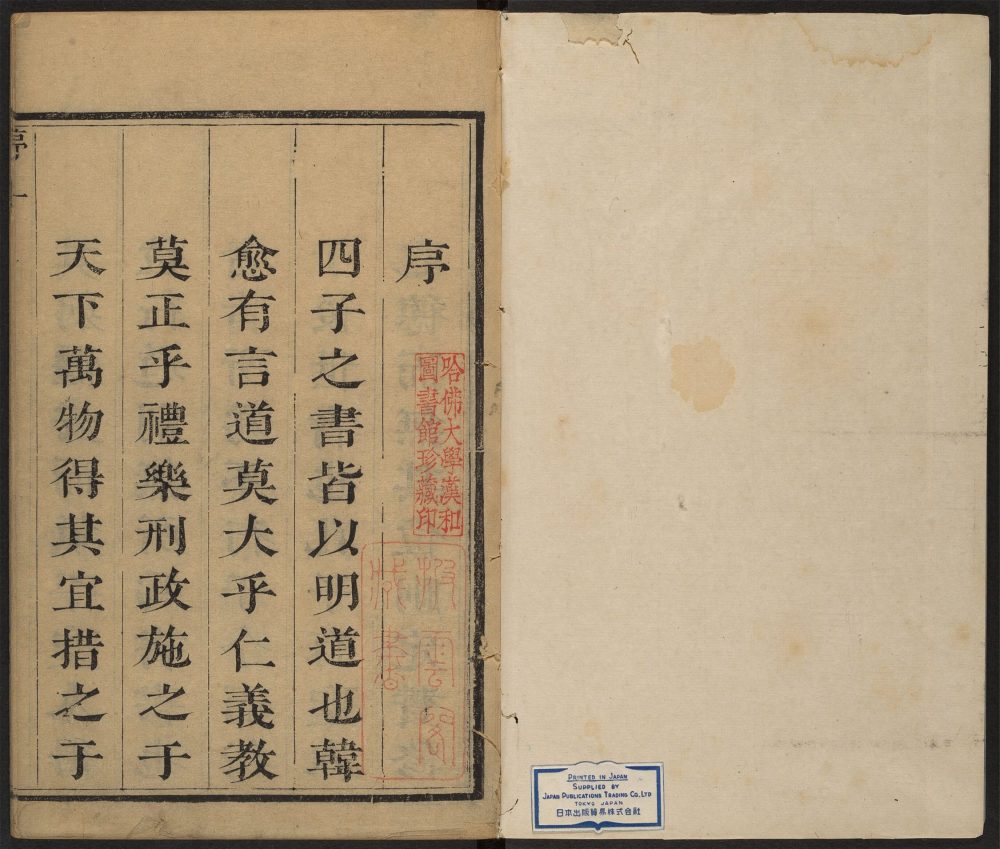 序
四子之書皆以明道也韓
愈有言道莫大乎仁義教
莫正乎禮樂刑政施之于
天下萬物得其宜措之于
序 一
哈佛大學漢和
圖書館珍藏印
藏書
PRINTED IN JAPAN
SUPPLIED BY
JAPAN PUBLICATIONS TRADING CO., LTD
TOKYO JAPAN
日本出版貿易株式会社